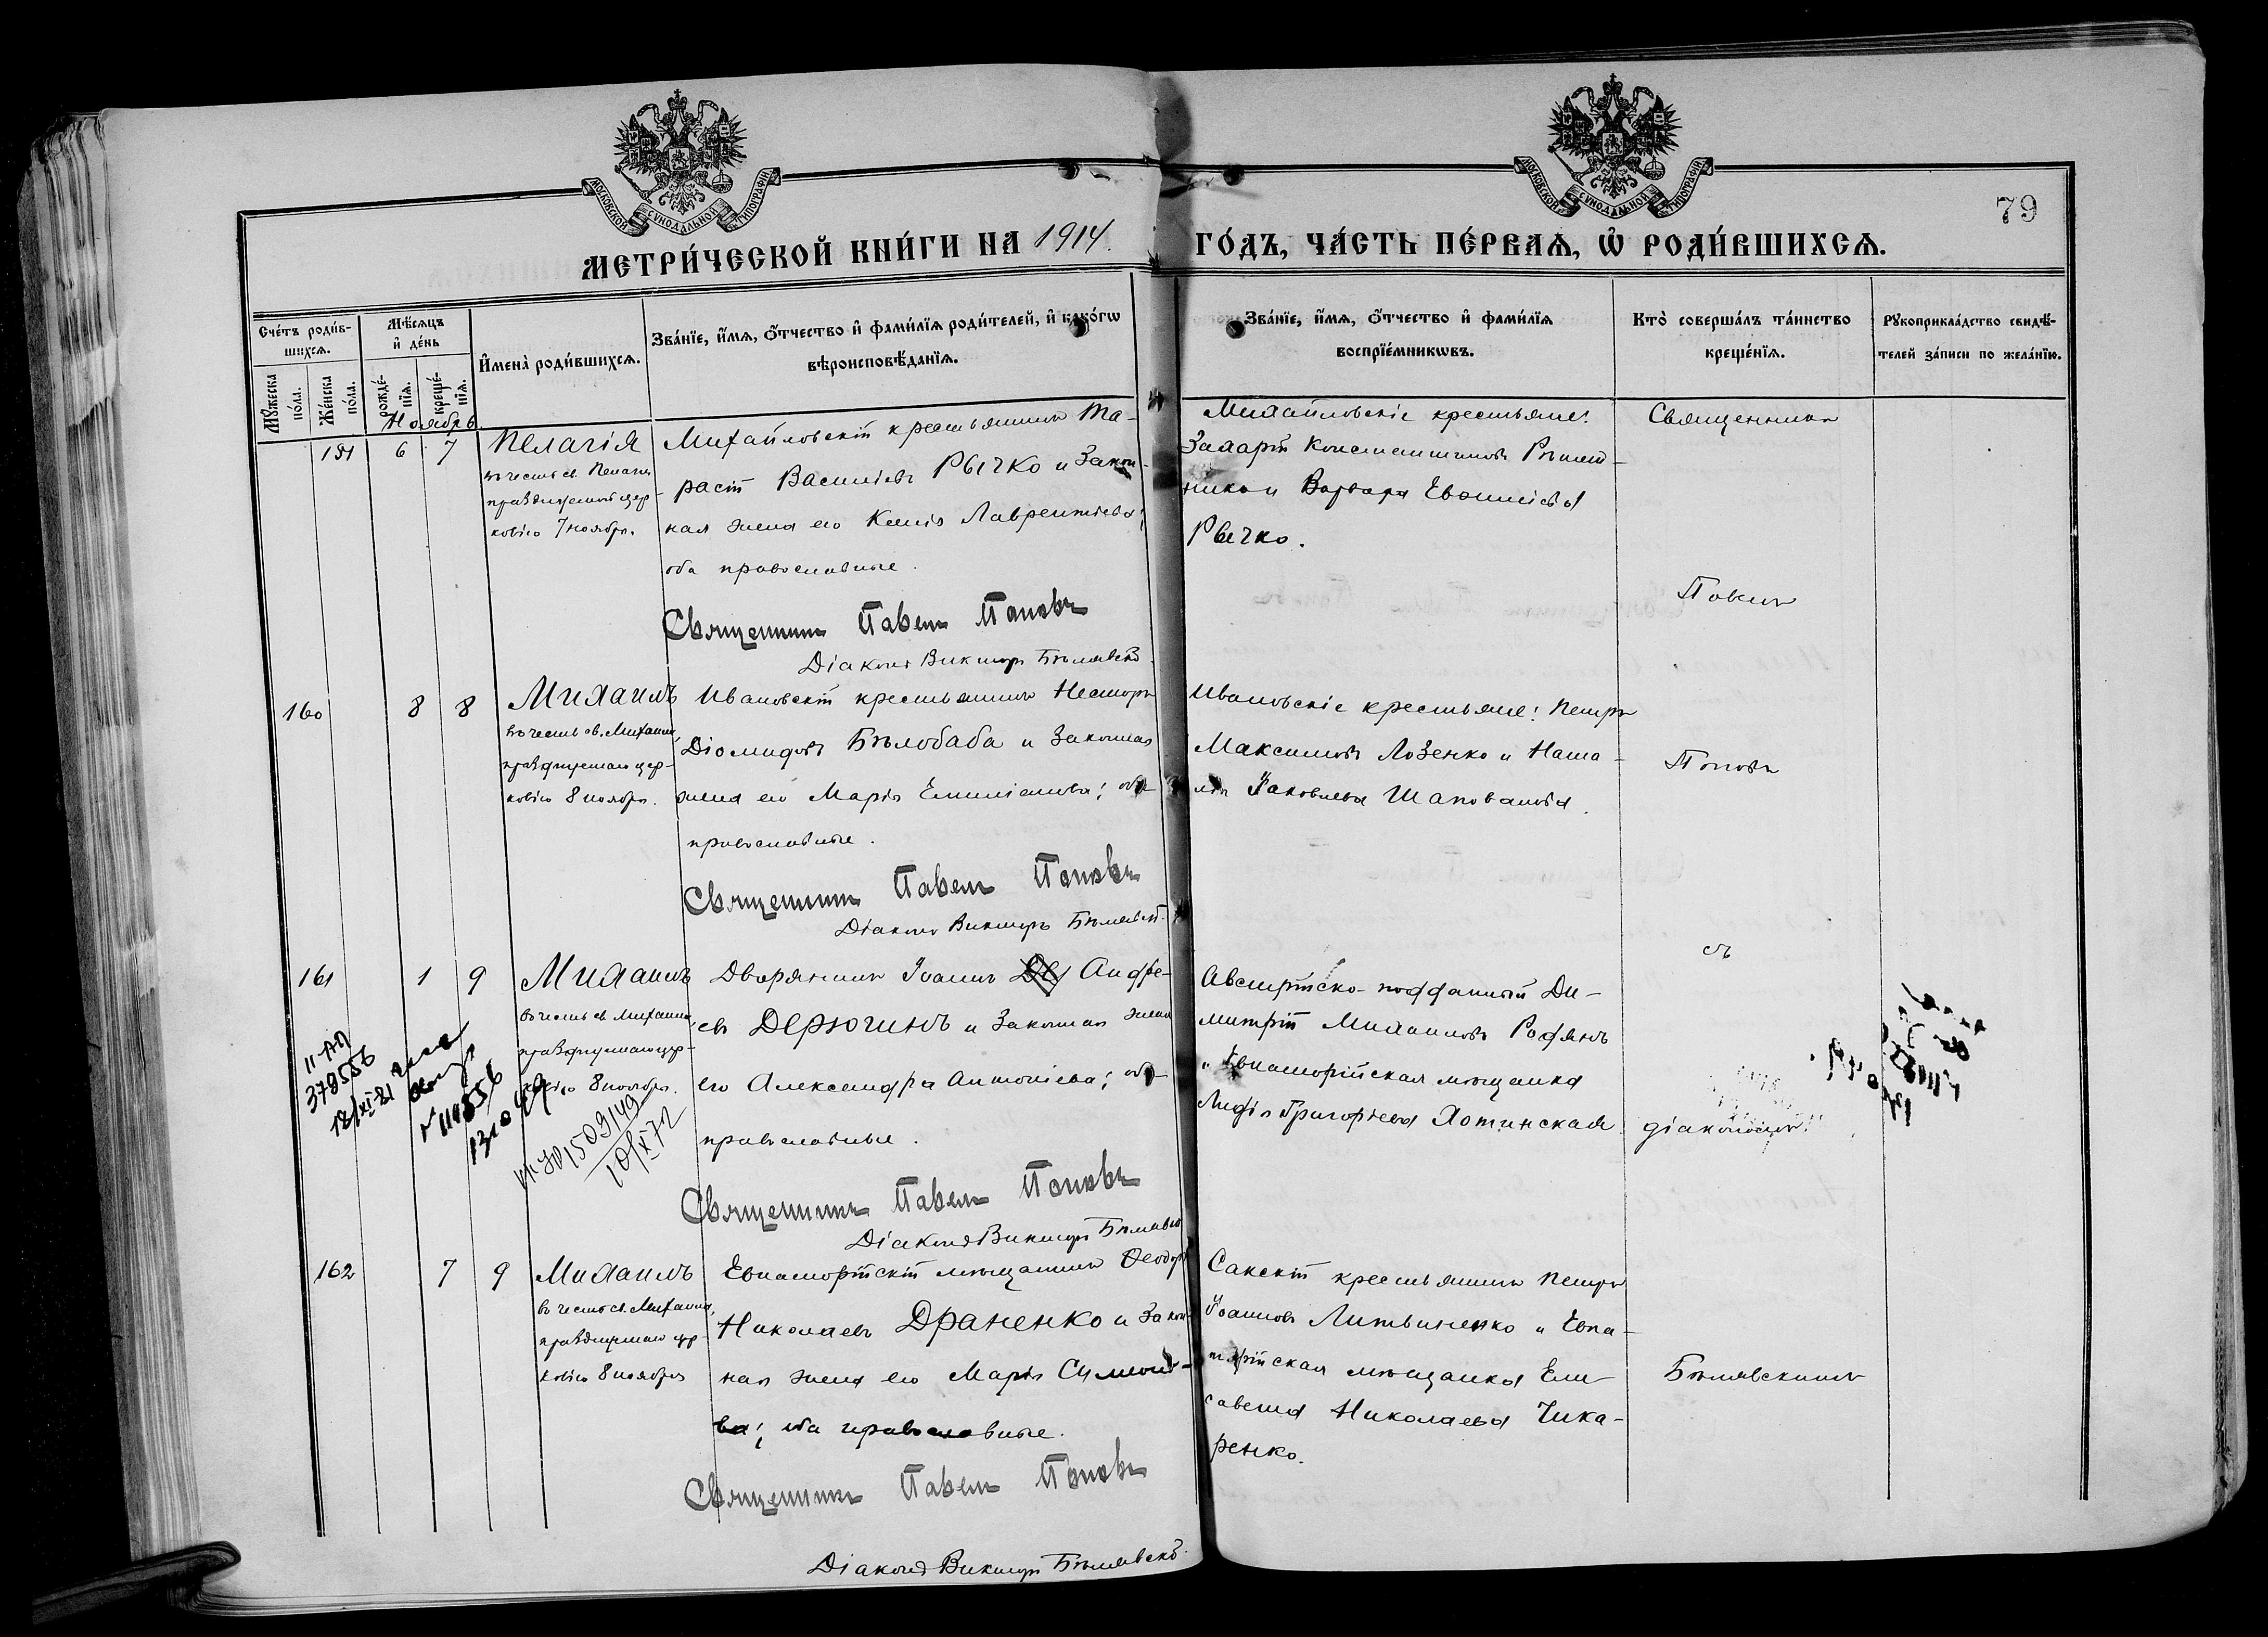 МОСКОВСКОЙ СУНОДАЛЬНОЙ ТИПОГРАФІИ
МОСКОВСКОЙ СУНОДАЛЬНОЙ ТИПОГРАФІИ
79
МЕТРИ́ЧЕСКОЙ КНИ́ГИ НА 1914. ГО́ДЪ, ЧА́СТЬ ПЕ́РВАѦ, Ѡ РОДИ́ВШИХСѦ.
Сче́тъ роди́в-
шихсѧ.
Мꙋ́жеска
по́ла.
Же́нска
по́ла.
Мѣ́сѧцъ
и҆ де́нь
рожде́-
нїѧ.
креще́-
нїѧ.
И҆мена̀ роди́вшихсѧ.
Зва́нїе, и҆́мѧ, ѻ҆́тчество и҆ фами́лїѧ роди́телей, и҆ како́гѡ
вѣроисповѣ́данїѧ.
Зва́нїе, и҆́мѧ, ѻ҆́тчество и҆ фами́лїѧ
воспрїе́мникѡвъ.
Кто̀ соверша́лъ та́инство
креще́нїѧ.
Рꙋкоприкла́дство свидѣ́-
телей за́писи по жела́нїю.
Ноябрь
6 7
Пелагія
въ честь св. Пелагіи
празднуемой цер-
ковію 7 ноября.
Михайловскій крестьянинъ Та-
расій Васильевъ Рычко и закон-
ная жена его Ксенія Лаврентіева;
оба православные.
Священникъ Павелъ Поповъ
Діаконъ Викторъ Бѣлявскій
Михайловскіе крестьяне:
Захарій Константиновъ
и Варвара
Рычко.
Священникъ
Павелъ
160 8 8
Михаилъ
въ честь св. Михаила,
празднуемаго цер-
ковію 8 ноября.
Ивановскій крестьянинъ Несторъ
Діомидовъ Бѣлобаба и законная
жена его Марія Емиліанова; оба
православные.
Священникъ Павелъ Поповъ
Діаконъ Викторъ Бѣлявскій
Ивановскіе крестьяне: Петръ
Максимовъ Лозенко и Ната-
лія Яковлева Шаповалова.
Поповъ
161 1 9
Михаилъ
въ честь св. Михаила,
празднуемаго цер-
ковію 8 ноября.
Дворянинъ Іоаннъ Андре-
евъ Дерюгинъ и законная жена
его Александра Антоніева; оба
православные.
Священникъ Павелъ Поповъ
Діаконъ Викторъ Бѣлявскій
Австрійско-подданный Ди-
митрій Михаиловъ Рофянъ
и Евпаторійская мѣщанка
Лидія Григорьева Хотинская.
съ
діакономъ
378556
10/X 72
162 7 9
Михаилъ
въ честь св. Михаила,
празднуемаго цер-
ковію 8 ноября
Евпаторійскій мѣщанинъ Ѳеодоръ
Николаевъ Драненко и закон-
ная жена его Марія Симеоно-
ва; оба православные.
Священникъ Павелъ Поповъ
Діаконъ Викторъ Бѣлявскій.
Сакскій крестьянинъ Петръ
Іоанновъ Литвиненко и Евпа-
торійская мѣщанка Ели-
савета Николаева Чика-
ренко.
Бѣлявскимъ